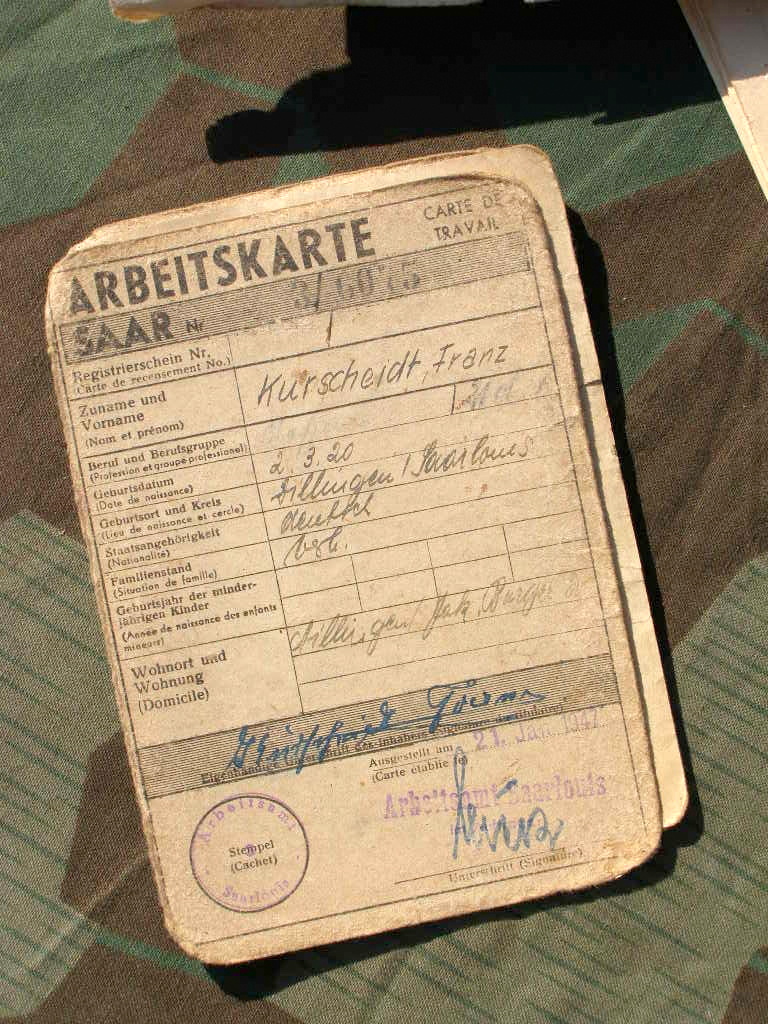 ARBEITSKARTE
CARTE DE
TRAVAIL
SAAR Nr
Registrierschein Nr.
(Carte de recensement No.)
Zuname und
Vorname
(Nom et prénom)
Kurscheidt, Franz
Beruf und Berufsgruppe
(Profession et groupe professionel)
Geburtsdatum
(Date de naissance)
2.3.20
Geburtsort und Kreis
(Lieu de naissance et cercle)
Dillingen / Saarlouis
Staatsangehörigkeit
(Nationalité)
deutsch
Familienstand
(Situation de famille)
vrh.
Geburtsjahr der minder-
jährigen Kinder
(Année de naissance des enfants
mineurs)
Wohnort und
Wohnung
(Domicile)
Dillingen
Kurscheidt Franz
Eigenhändige Unterschrift des Inhabers (Signature du titulaire)
Ausgestellt am
(Carte établie le)
21. Jan. 1947
Arbeitsamt Saarlouis
Arbeitsamt
Stempel
(Cachet)
Saarlouis
Unterschrift (Signature)